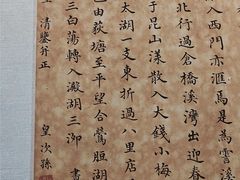 入西門亦滙爲雲溪
北行過倉橋溪灣出迎春
于昆山漾散入大錢小梅
太湖一支東折過八里店
已由荻塘至平望合鶯脰湖
三白蕩轉入澱湖三泖
書
清鑒并正
皇次孫